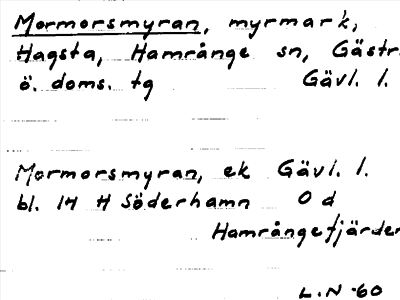 Mormorsmyran, myrmark,
Hagsta, Hamrånge sn, Gästr.
ö. doms. tg Gävl. l.
Mormorsmyran, ek Gävl. l.
bl. 14 H Söderhamn O d
Hamrångefjärden
L.N -60